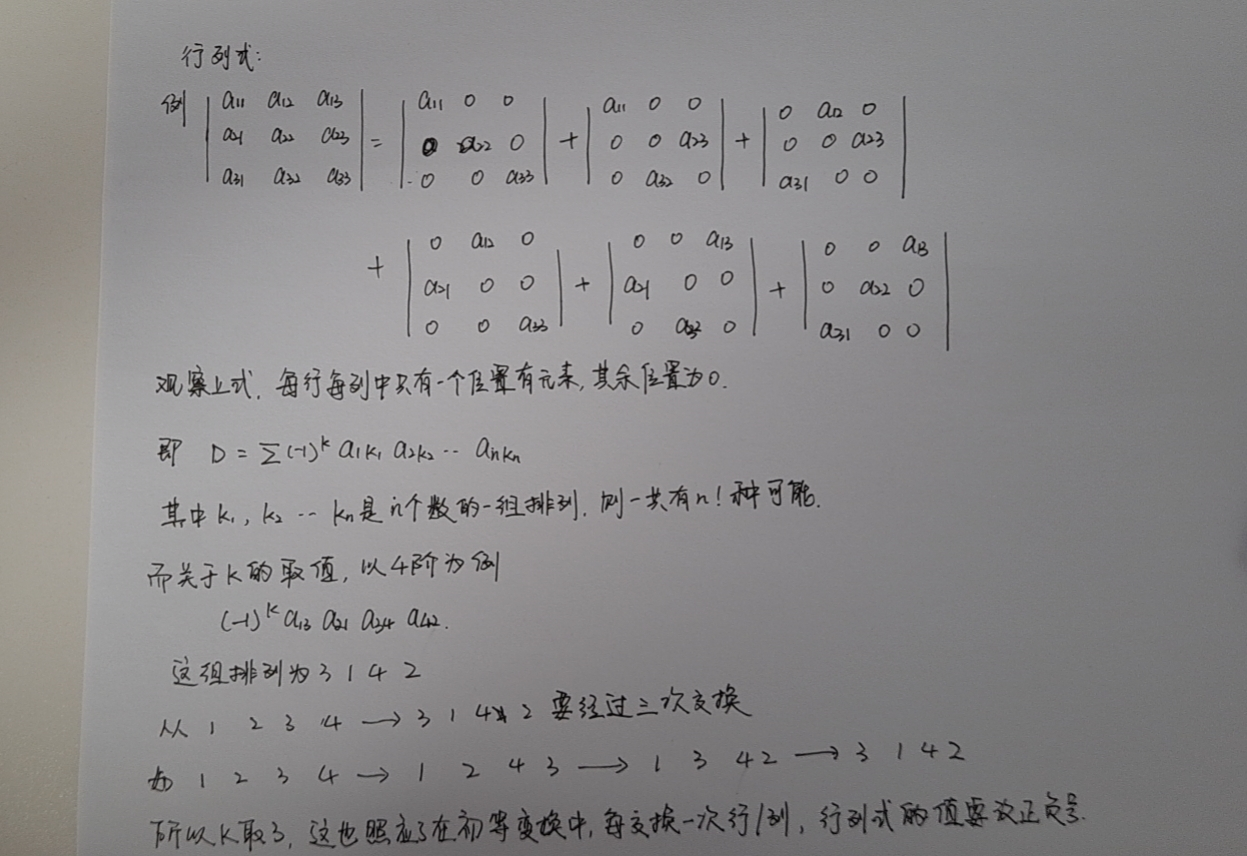 行列式:
例 | a11 a12 a13 | = | a11 0 0 | + | a11 0 0 | + | 0 a12 0 |
| a21 a22 a23 | | 0 a22 0 | | 0 0 a23 | | 0 0 a23 |
| a31 a32 a33 | | 0 0 a33 | | 0 a32 0 | | a31 0 0 |
+ | 0 a12 0 | + | 0 0 a13 | + | 0 0 a13 |
| a21 0 0 | | a21 0 0 | | 0 a22 0 |
| 0 0 a33 | | 0 a32 0 | | a31 0 0 |
观察上式,每行每列中只有一个位置有元素,其余位置为0.
即 D = Σ(-1)^k a1k1 a2k2 ·· ankn
其中 k1, k2 ·· kn是n个数的一组排列,则一共有n!种可能.
而关于k的取值,以4阶为例
(-1)^k a13 a21 a34 a42.
这组排列为 3 1 4 2
从 1 2 3 4 → 3 1 4 2 要经过三次交换
如 1 2 3 4 → 1 2 4 3 → 1 3 4 2 → 3 1 4 2
所以k取3,这也照应了在初等变换中,每交换一次行/列,行列式的值要改正负号.